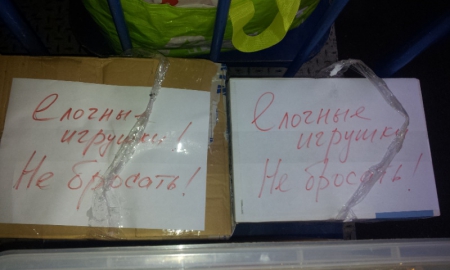 Елочные
игрушки!
Не бросать!
Елочные
игрушки
Не бросать!